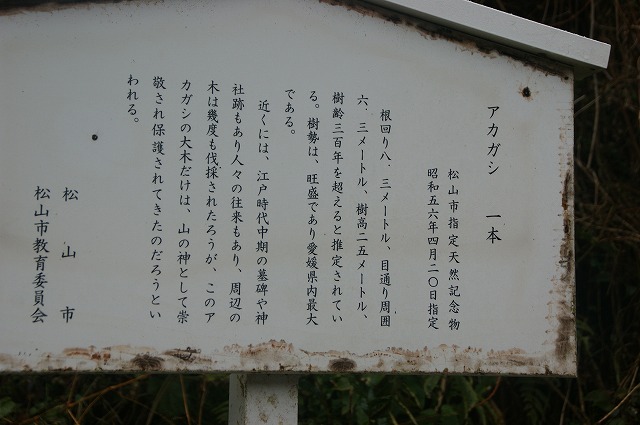 アカガシ　一本
松山市指定天然記念物
昭和五六年四月二〇日指定
根回り八．三メートル、目通り周囲
六．三メートル、樹高二五メートル、
樹齢三百年を超えると推定されてい
る。樹勢は、旺盛であり愛媛県内最大
である。
近くには、江戸時代中期の墓碑や神
社跡もあり人々の往来もあり、周辺の
木は幾度も伐採されたろうが、このア
カガシの大木だけは、山の神として崇
敬され保護されてきたのだろうとい
われる。
松山市
松山市教育委員会